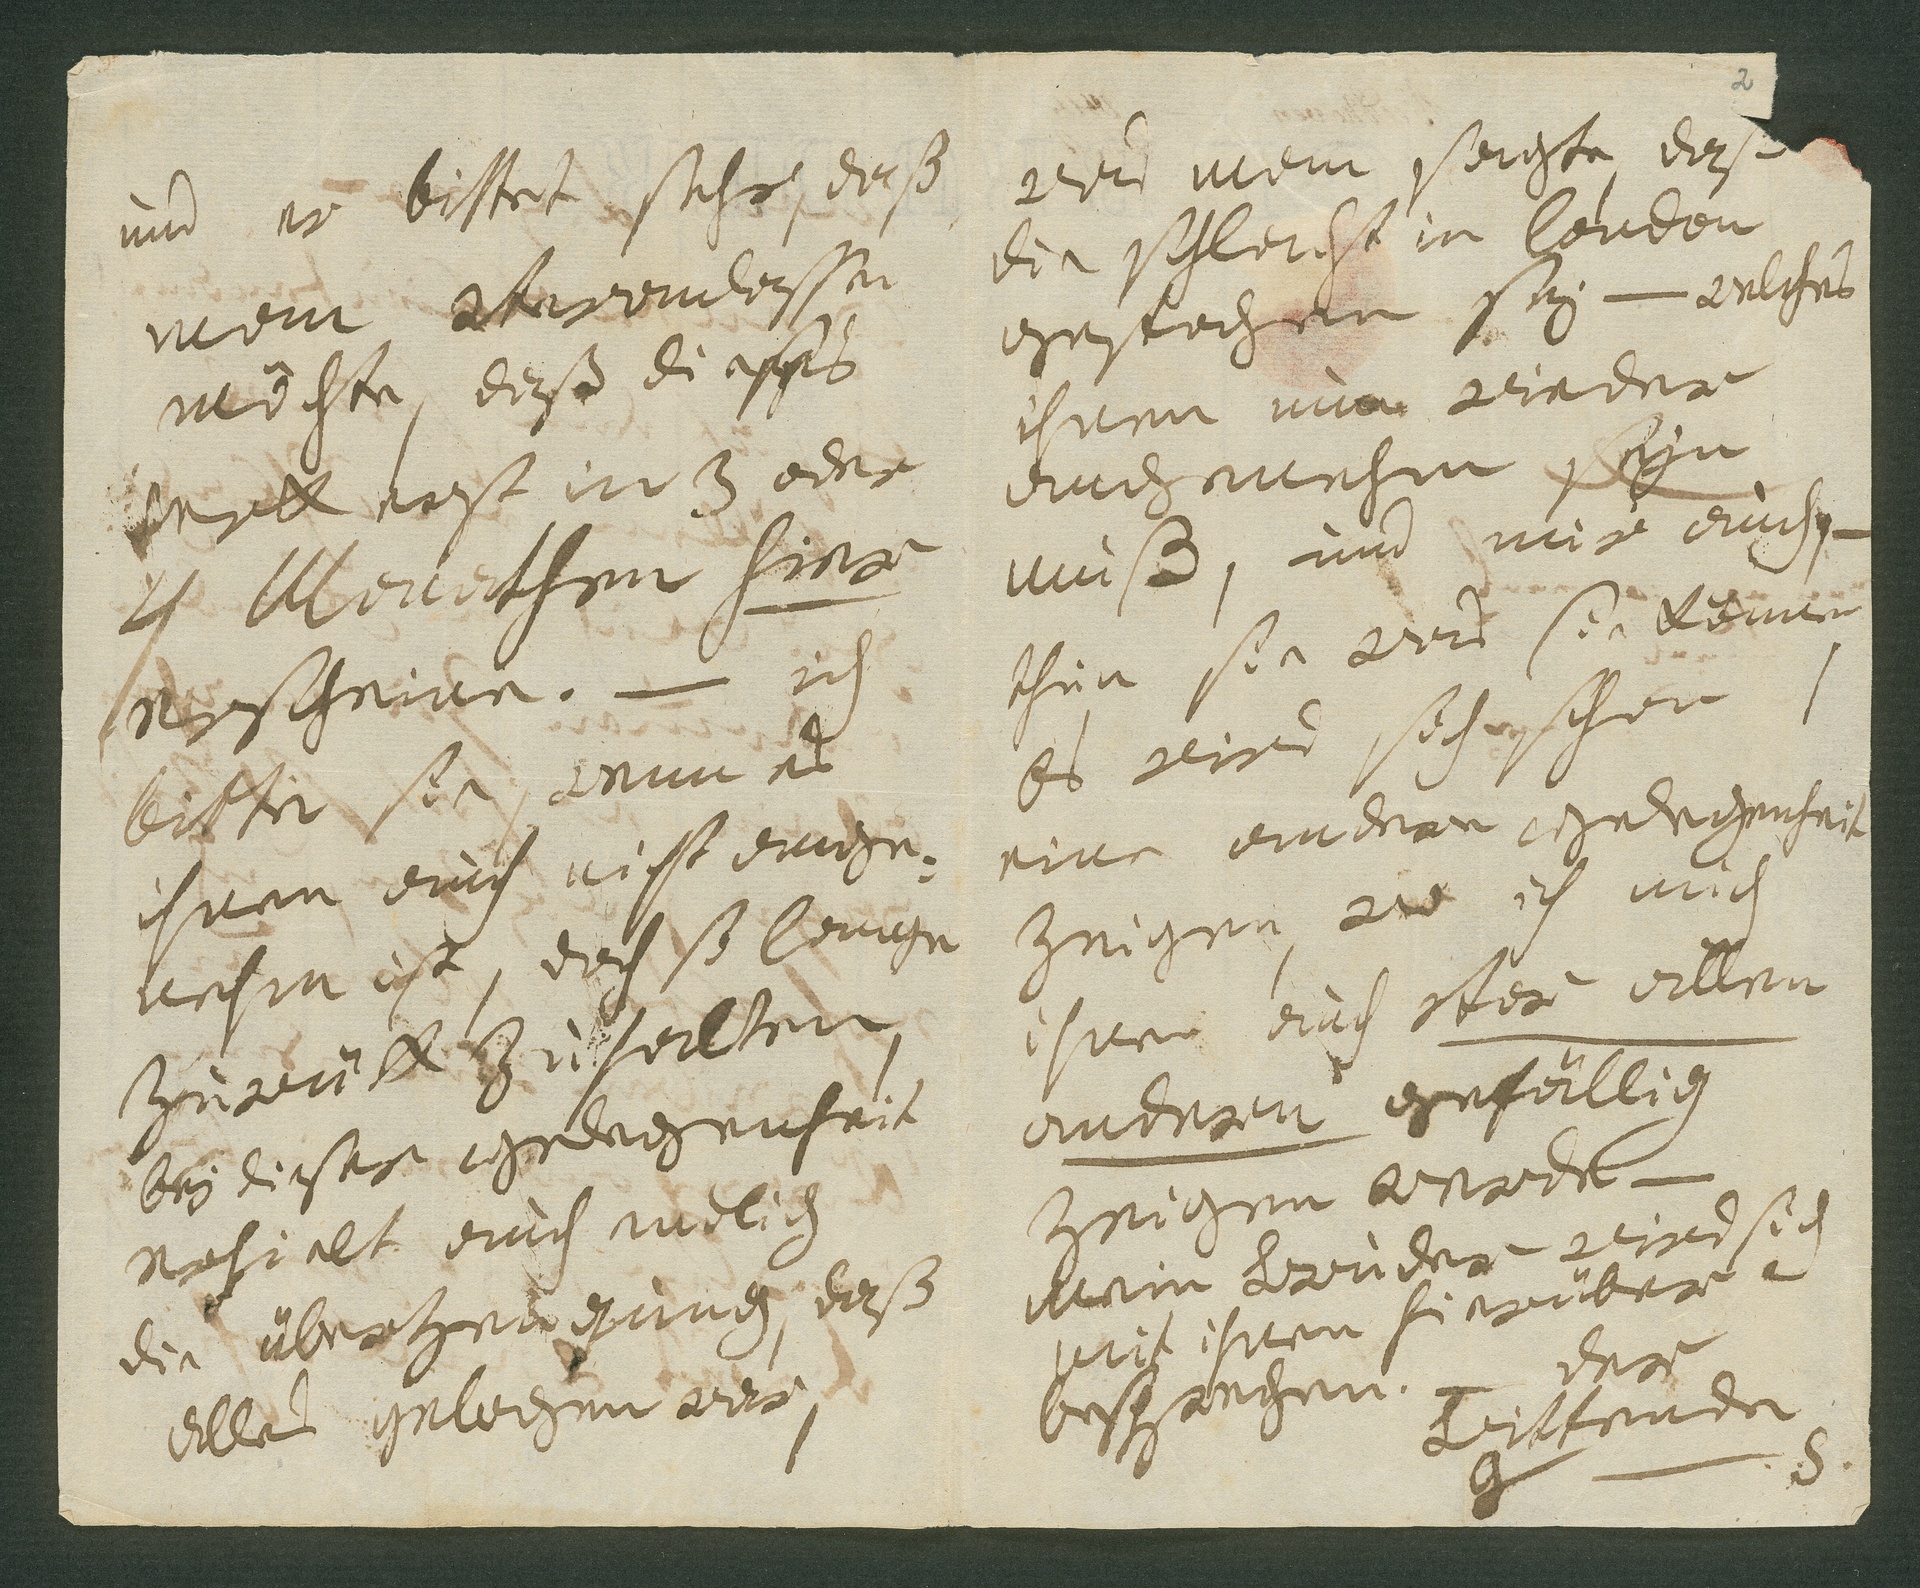 und er bittet sehr, daß
man veranlassen
möchte, daß dieses
werk erst in 3 oder
4 Monathen hier
erscheine. — ich
bitte sie, wenn es
ihnen auch nicht ange:
nehm ist, doch so lange
zurük zu halten,
bey dieser gelegenheit
erhielt auch endlich
die überzeugung, daß
alles gelogen war,
2
was man sagte, daß
die schlacht in london
gestochen sey — welches
ihnen nun wieder
angenehm seyn
muß, und mir auch, —
thun sie was sie können
es wird sich schon
eine andere gelegenheit
zeigen, wo ich mich
ihnen auch vor allen
anderen gefällig
zeigen werde —
mein Bruder wird sich
mit ihnen hierüber
besprechen. — der
Bittende